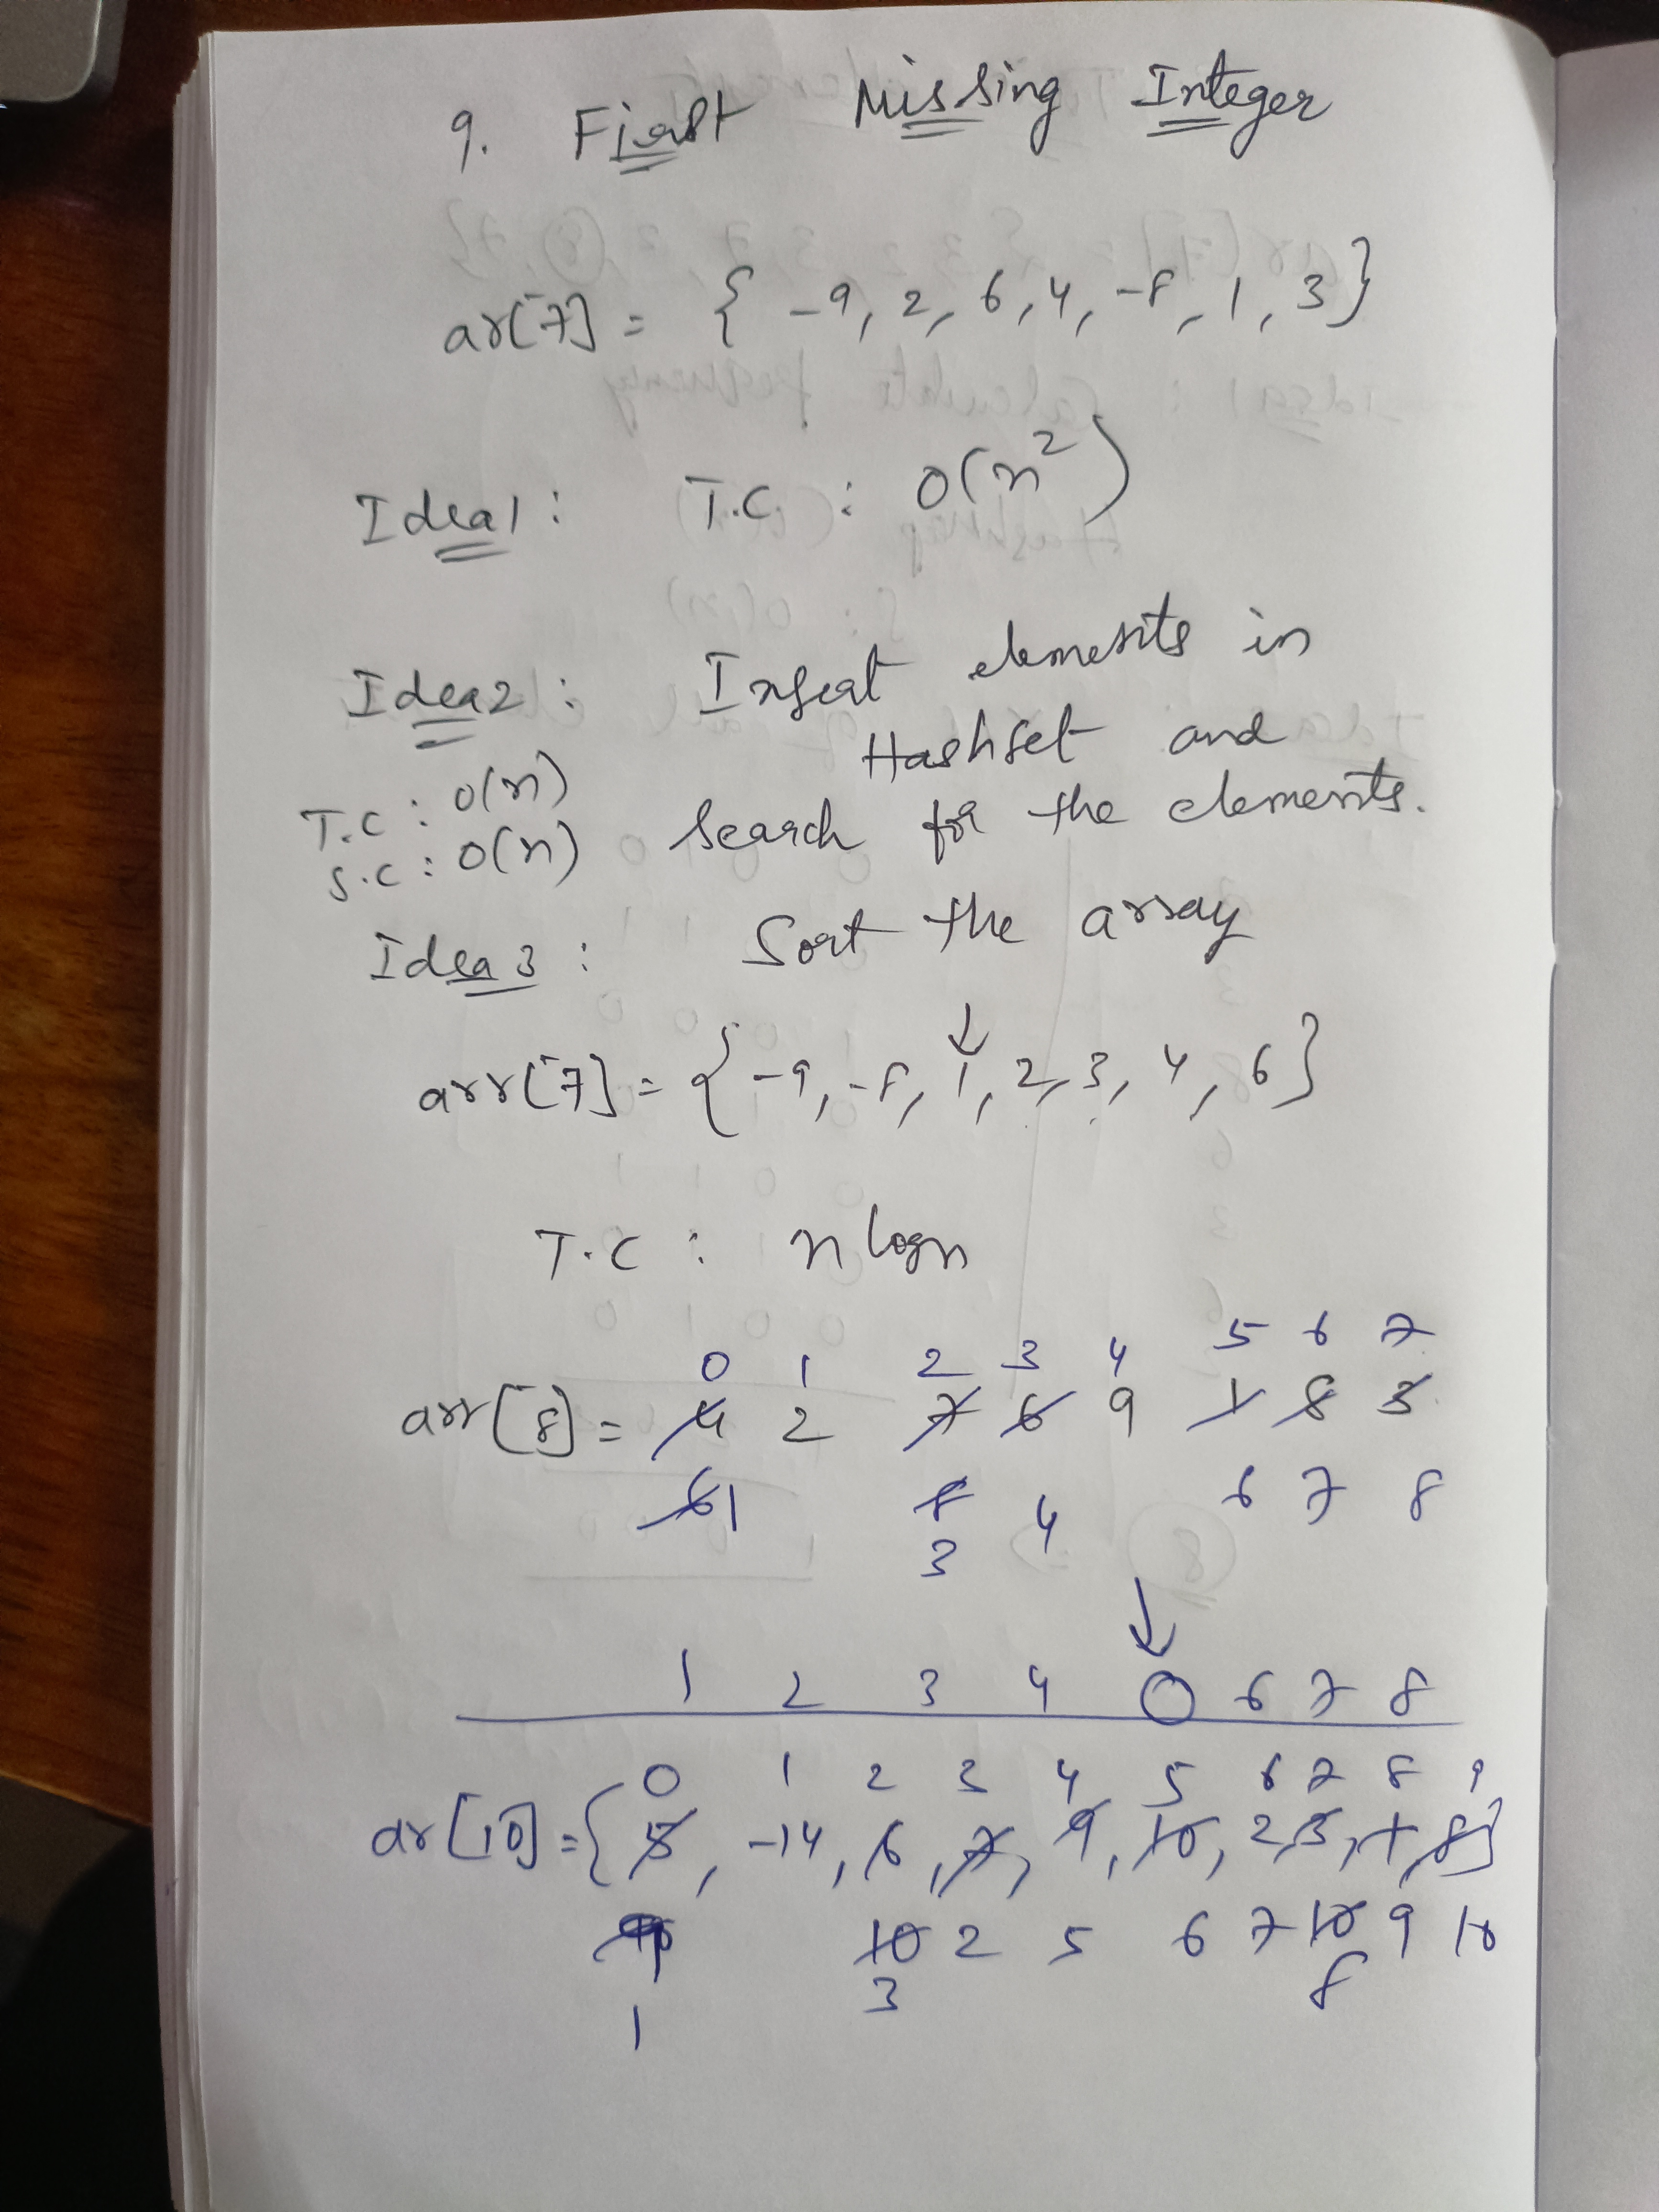 9. First Missing Integer
ar[7] = { -9, 2, 6, 4, -8, 1, 3}
Idea1 : T.C : O(n²)
Idea2 : Insert elements in
Hashset and
search for the elements.
T.C : O(n)
S.C : O(n)
Idea 3 : Sort the array
arr[7] = { -9, -8, 1, 2, 3, 4, 6}
T.C : n logn
0 1 2 3 4 5 6 7
arr[8] = 4 2 7 6 9 1 8 3
6 1 8 4 6 7 8
3
1 2 3 4 O 6 7 8
0 1 2 3 4 5 6 7 8 9
ar[10] = { 5, -14, 6, 7, 9, 10, 2, 3, 1, 8}
10 2 5 6 7 10 9 10
1 3 8